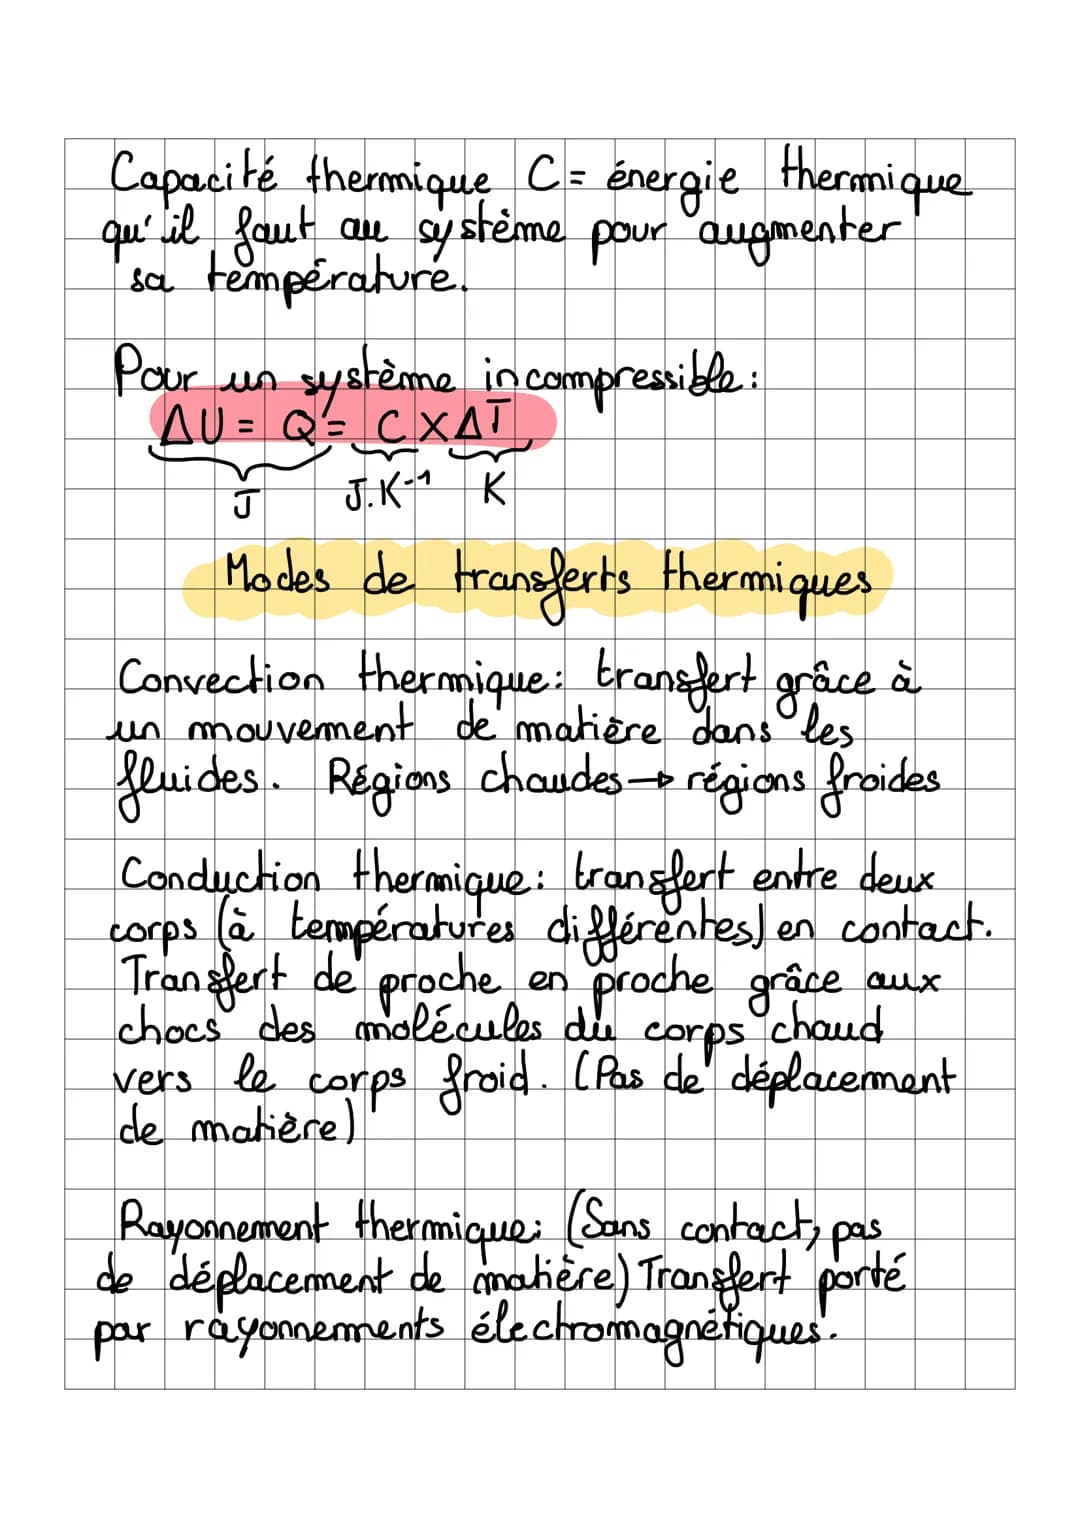 Capacité thermique C = énergie thermique
qu'il faut au système pour augmenter
sa température.
Pour un système incompressible :
ΔU = Q = C × ΔT
J J.K⁻¹ K
Modes de transferts thermiques
Convection thermique : transfert grâce à
un mouvement de matière dans les
fluides. Régions chaudes → régions froides
Conduction thermique : transfert entre deux
corps (à températures différentes) en contact.
Transfert de proche en proche grâce aux
chocs des molécules du corps chaud
vers le corps froid. (Pas de déplacement
de matière)
Rayonnement thermique : (Sans contact, pas
de déplacement de matière) Transfert porté
par rayonnements électromagnétiques.